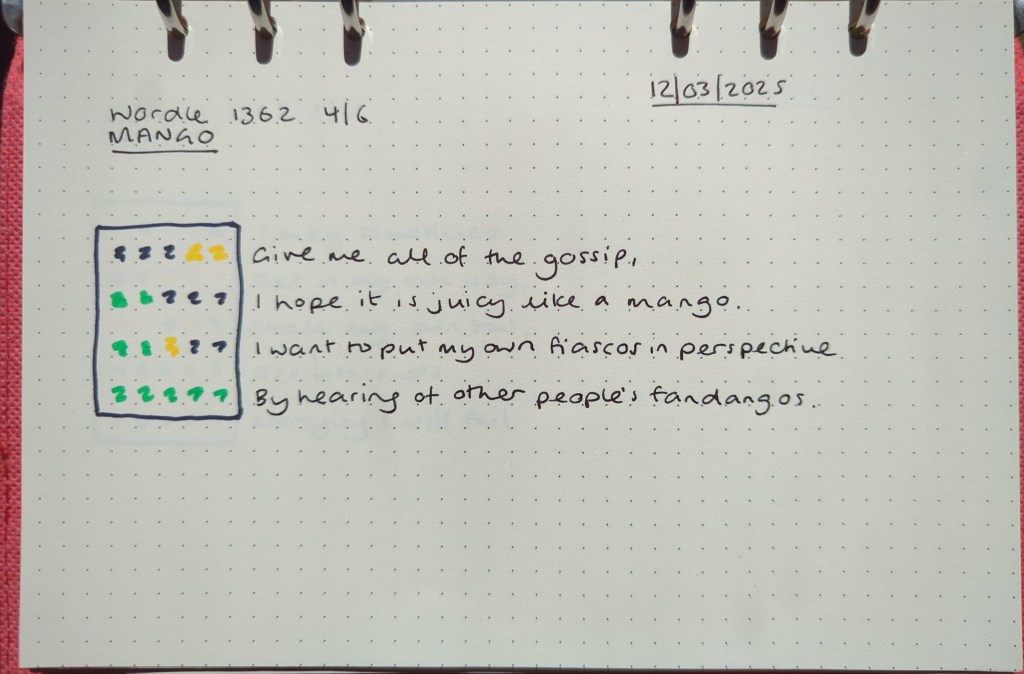 12/03/2025
Wordle 1362 4/6
MANGO
Give me all of the gossip,
I hope it is juicy like a mango.
I want to put my own fiascos in perspective
By hearing of other people's fandangos.